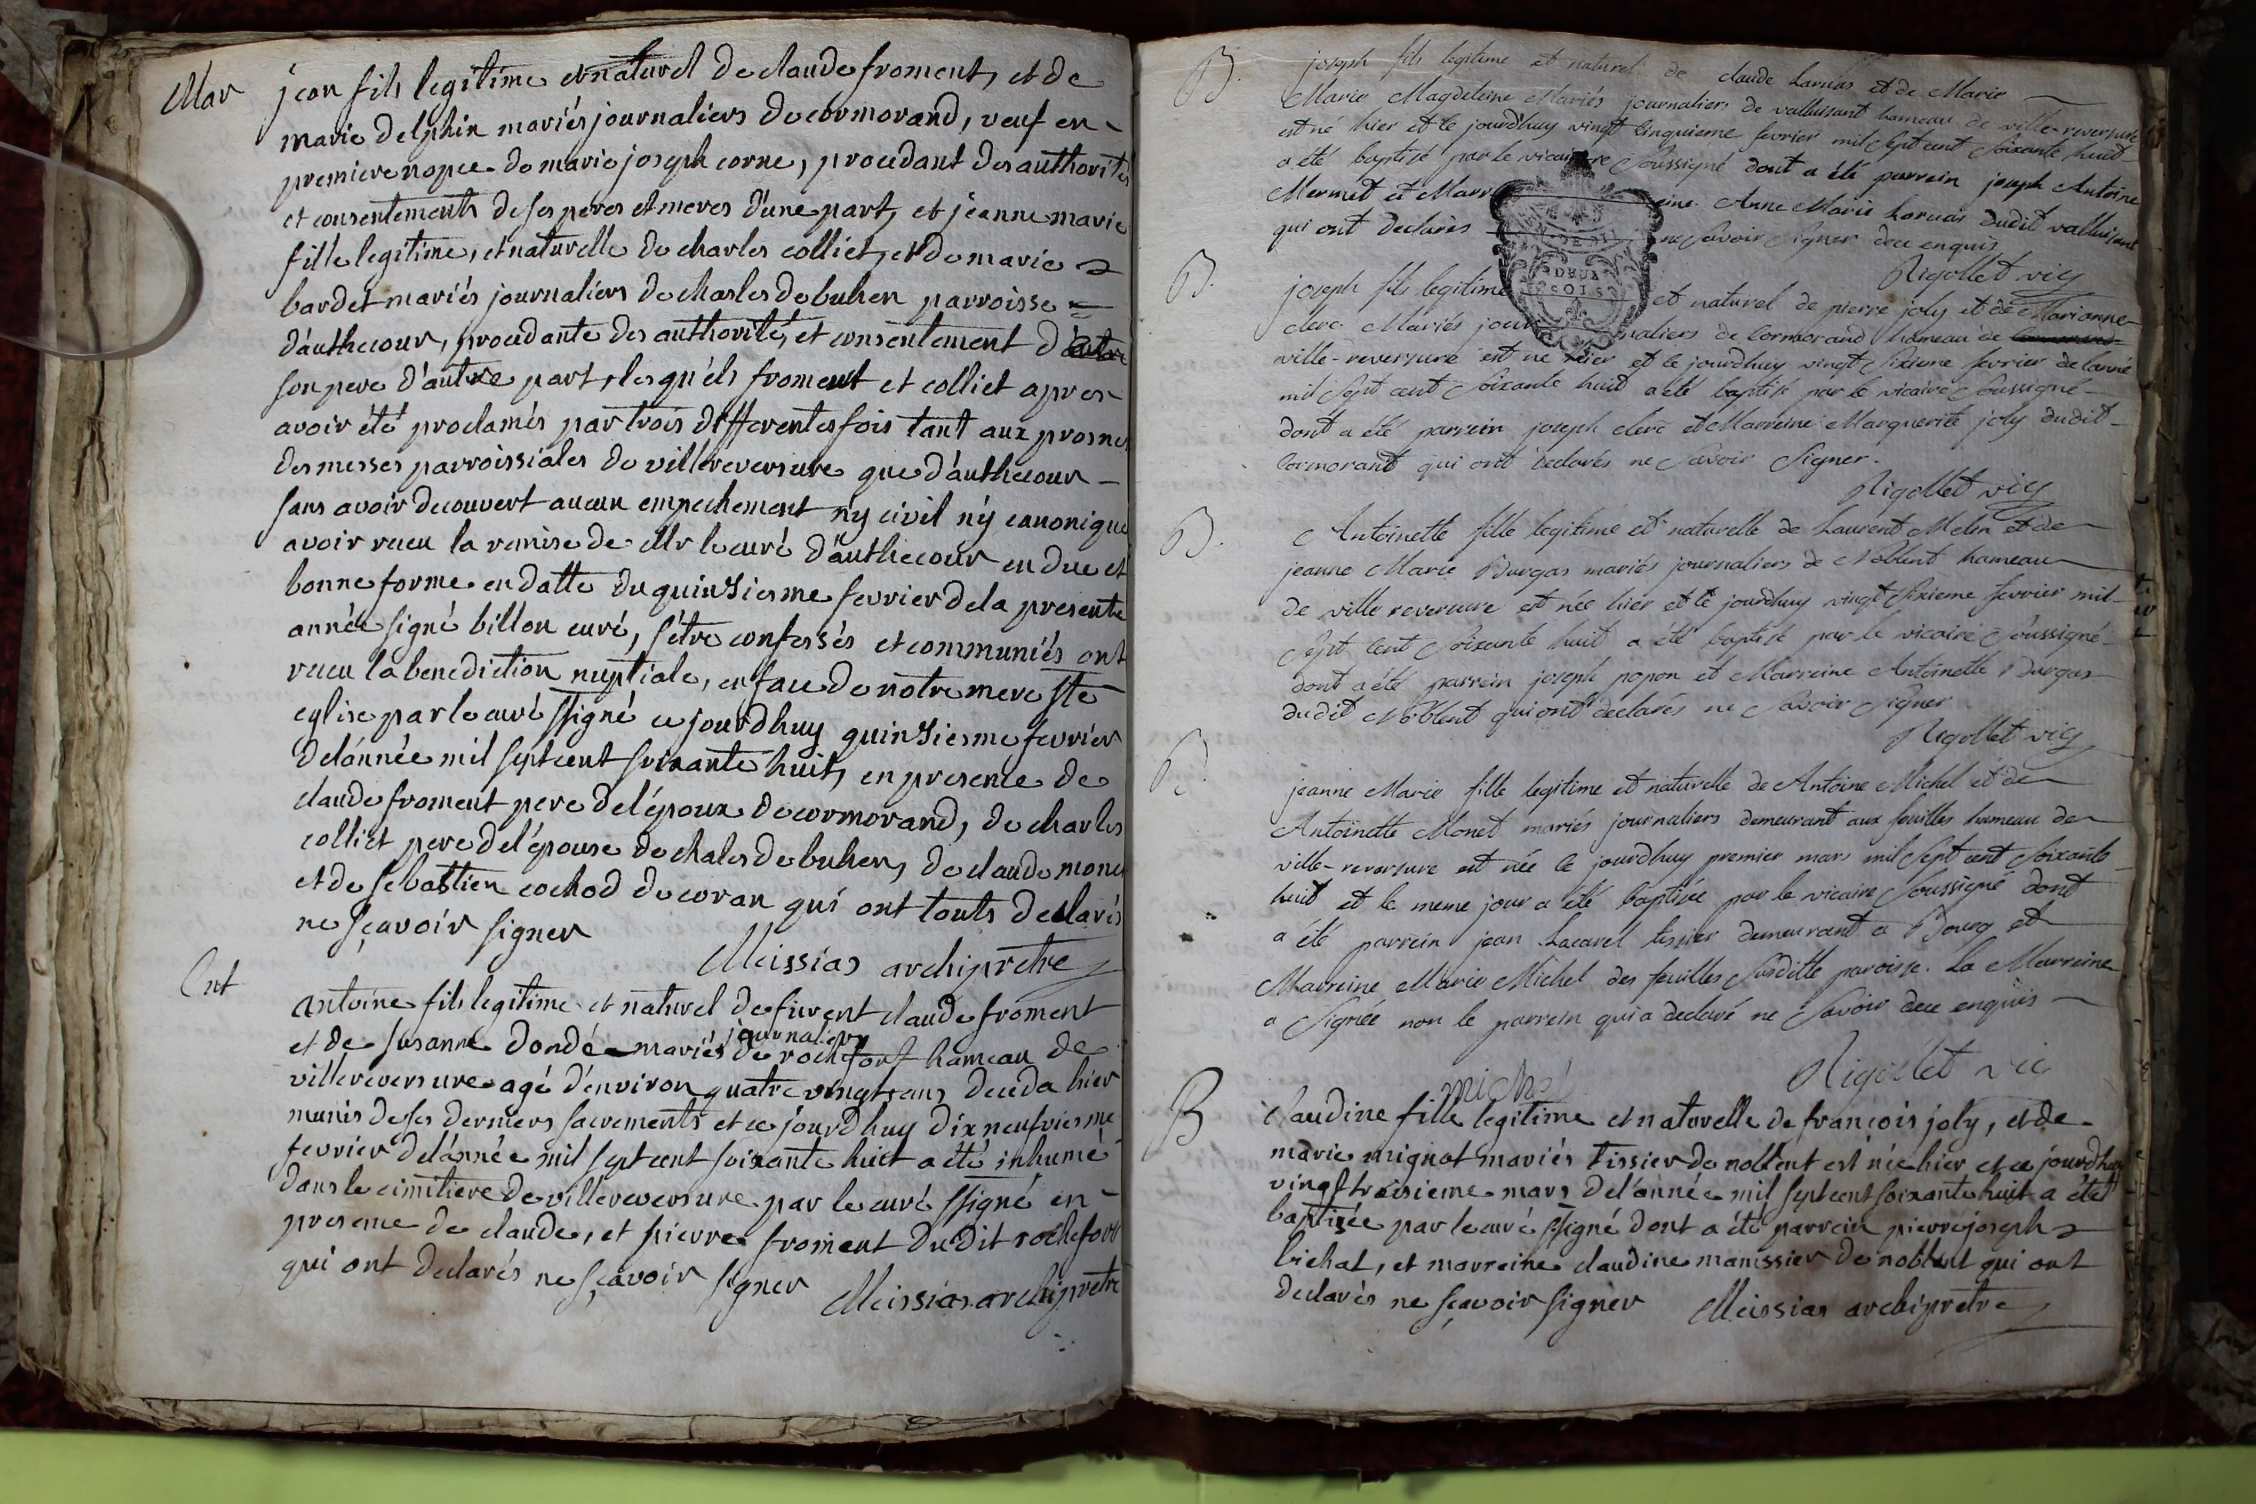 Mar
jean fils legitime et naturel de claude froment, et de
marie delphin mariés journaliers de cormorand, veuf en
premiere nopce de marie joseph corne, procedant des authorités
et consentements de ses peres et meres d'une part, et jeanne marie
fille legitime, et naturelle de charles colliet, et de marie
bardet mariés journaliers de charles de buhen parroisse
d'authecour, procedante des authorité, et consentement d
son pere d'autre part, lesquels froment et colliet apres
avoir été proclamés par trois differentes fois tant aux prosnes
des messes parroissiales de villereversure que d'authecour
sans avoir decouvert aucun empechement n'y civil n'y canonique
avoir receu la remise de Mr le curé d'authecour en due et
bonne forme en datte du quinsiesme fevrier de la presente
année signé billon curé, s'être confessés et communiés ont
receu la benediction nuptiale, en face de notre mere Ste
eglise par le curé ssigné ce jourdhuy quinsiesme fevrier
de l'année mil sept cent soixante huit, en presence de
claude froment pere de l'époux de cormorand, de charles
colliet pere de l'épouse de chales de buhen, de claude mone
et de sebastien cochod de coran qui ont touts declarés
ne sçavoir signer
Meissias archipretre
Ent
antoine fils legitime et naturel de furent claude froment
et de susanne dondé mariés journaliers de rochefort hameau de
villereversure agé d'environ quatre vingt ans deceda hier
munis de ses derniers sacrements et ce jourdhuy dix neufviesme
fevrier de l'année mil sept cent soixante huit a été inhumé
dans le cimitiere de villereversure par le curé ssigné en
presence de claude, et pierre froment dudit rochefort
qui ont declarés ne sçavoir signer Meissias archipretre
B.
joseph fils legitime et naturel de claude Laruas et de Marie
Marie Magdeleine Mariés journaliers de valluisant hameau de ville-reversure
est né hier et le jourdhuy vingt cinquieme fevrier mil sept cent soixante huit
a été baptisé par le vicaire soussigné dont a été parrein joseph Antoine
Mermet et Marreine Anne Marie Laruas dudit valluisant
qui ont declarés ne savoir signer dece enquis
Rigollet vic
B.
joseph fils legitime et naturel de pierre joly et de Marianne
clerc Mariés journaliers de Cormorand hameau de
ville-reversure est né hier et le jourdhuy vingt sixieme fevrier de lanné
mil sept cent soixante huit a été baptisé par le vicaire soussigné
dont a été parrein joseph clerc et Marreine Marguerite joly dudit
Cormorant qui ont declarés ne savoir signer.
Rigollet vic
B.
Antoinette fille legitime et naturelle de Laurent Melin et de
jeanne Marie Burgas mariés journaliers de Noblent hameau
de ville reversure est née hier et le jourdhuy vingt sixieme fevrier mil
sept cent soixante huit a été baptisé par le vicaire soussigné
dont a été parrein joseph popon et Marreine Antoinette Burgas
dudit Noblent qui ont declarés ne savoir signer
Rigollet vic
B.
jeanne Marie fille legitime et naturelle de Antoine Michel et de
Antoinette Monet mariés journaliers demeurant aux feuilles hameau de
ville-reversure est née le jourdhuy premier mars mil sept cent soixante
huit et le meme jour a été baptisée par le vicaire soussigné dont
a été parrein jean Lacarel tissier demeurant a Bourg et
Marreine Marie Michel des feuilles susditte paroisse. La Marreine
a signée non le parrein qui a declaré ne savoir dece enquis
michel Rigollet vic
B
claudine fille legitime et naturelle de françois joly, et de
marie mignot mariés tissier de noblent est née hier et ce jourdhuy
vingt troisieme mars de l'année mil sept cent soixante huit a été
baptisée par le curé ssigné dont a été parrein pierre joseph
bichat, et marreine claudine manissier de noblent qui ont
declarés ne sçavoir signer Meissias archipretre
DEUX
SOLS